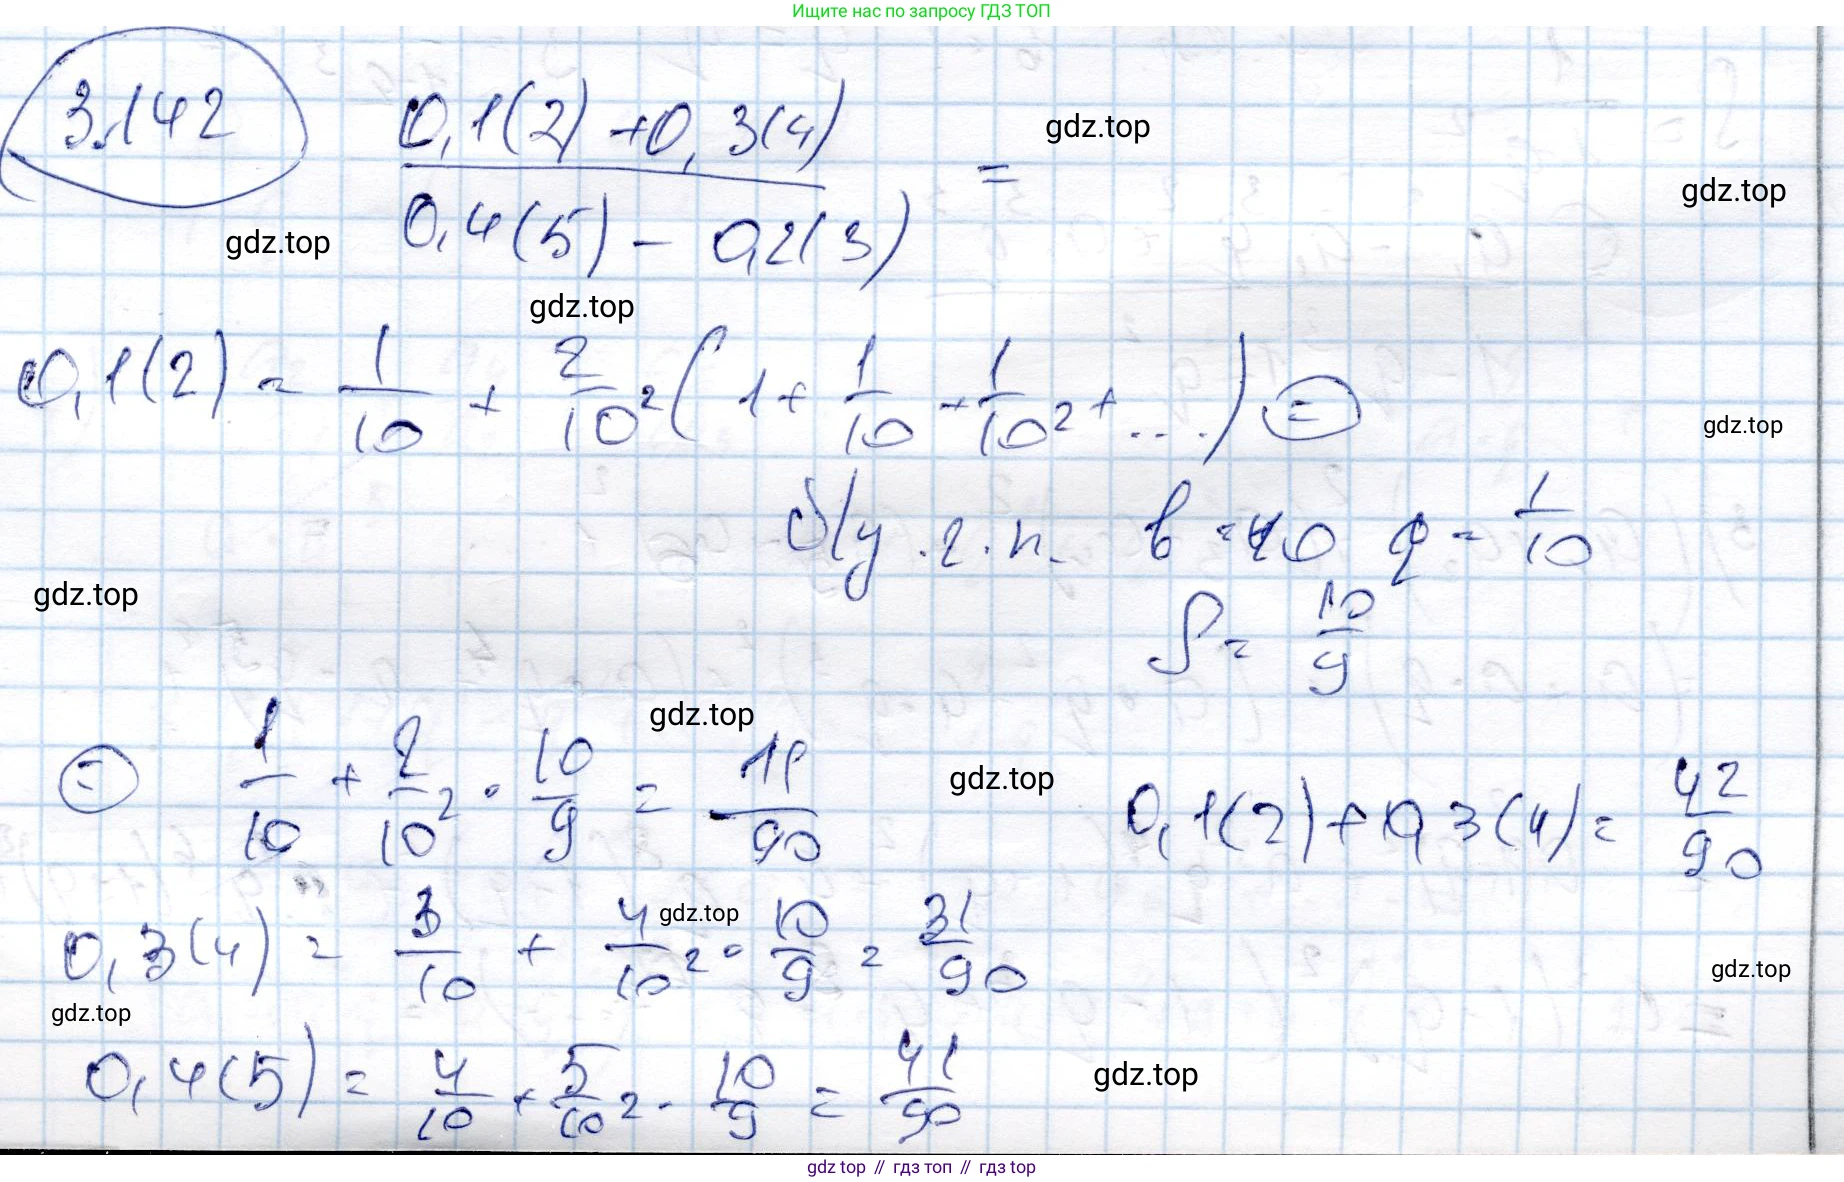 Ищите нас по запросу ГДЗ ТОП
3.142 (0,1(2) + 0,3(4)) / (0,4(5) - 0,2(3)) =
gdz.top
gdz.top
gdz.top
gdz.top
0,1(2) = 1/10 + 2/10² (1 + 1/10 + 1/10² + ...) =
gdz.top
б/у. г. п. b = 10 q = 1/10
gdz.top
S = 10/9
gdz.top
= 1/10 + 2/10² · 10/9 = 11/90
gdz.top
0,1(2) + 0,3(4) = 42/90
gdz.top
0,3(4) = 3/10 + 4/10² · 10/9 = 31/90
gdz.top
gdz.top
0,4(5) = 4/10 + 5/10² · 10/9 = 41/90
gdz.top
gdz top // гдз топ // гдз top